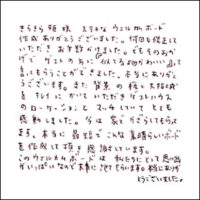 きらきら 姫 様 ステキな ウエルカムボード
作成 ありがとうございました。何回も修正して
いただき お手数かけました。でもそのおかげ
で ゲストの方に 似てる!!かわいい!!と言
ってもらうことができました。本当にありがと
うございます。また 背景の 桜と大阪城
を キレイに かいて いただき ゲストハウス
のロケーションと マッチしていて とても
感動しました。今は 家で かざらてもらって
ます。本当に 最短で こんな 素晴らしいボード
を作成して頂き 感謝しています。
このウェルカムボードは 私たちにとって 思い出が
いっぱいなので 大事に させてもらいます。本当にありが
とうございました。